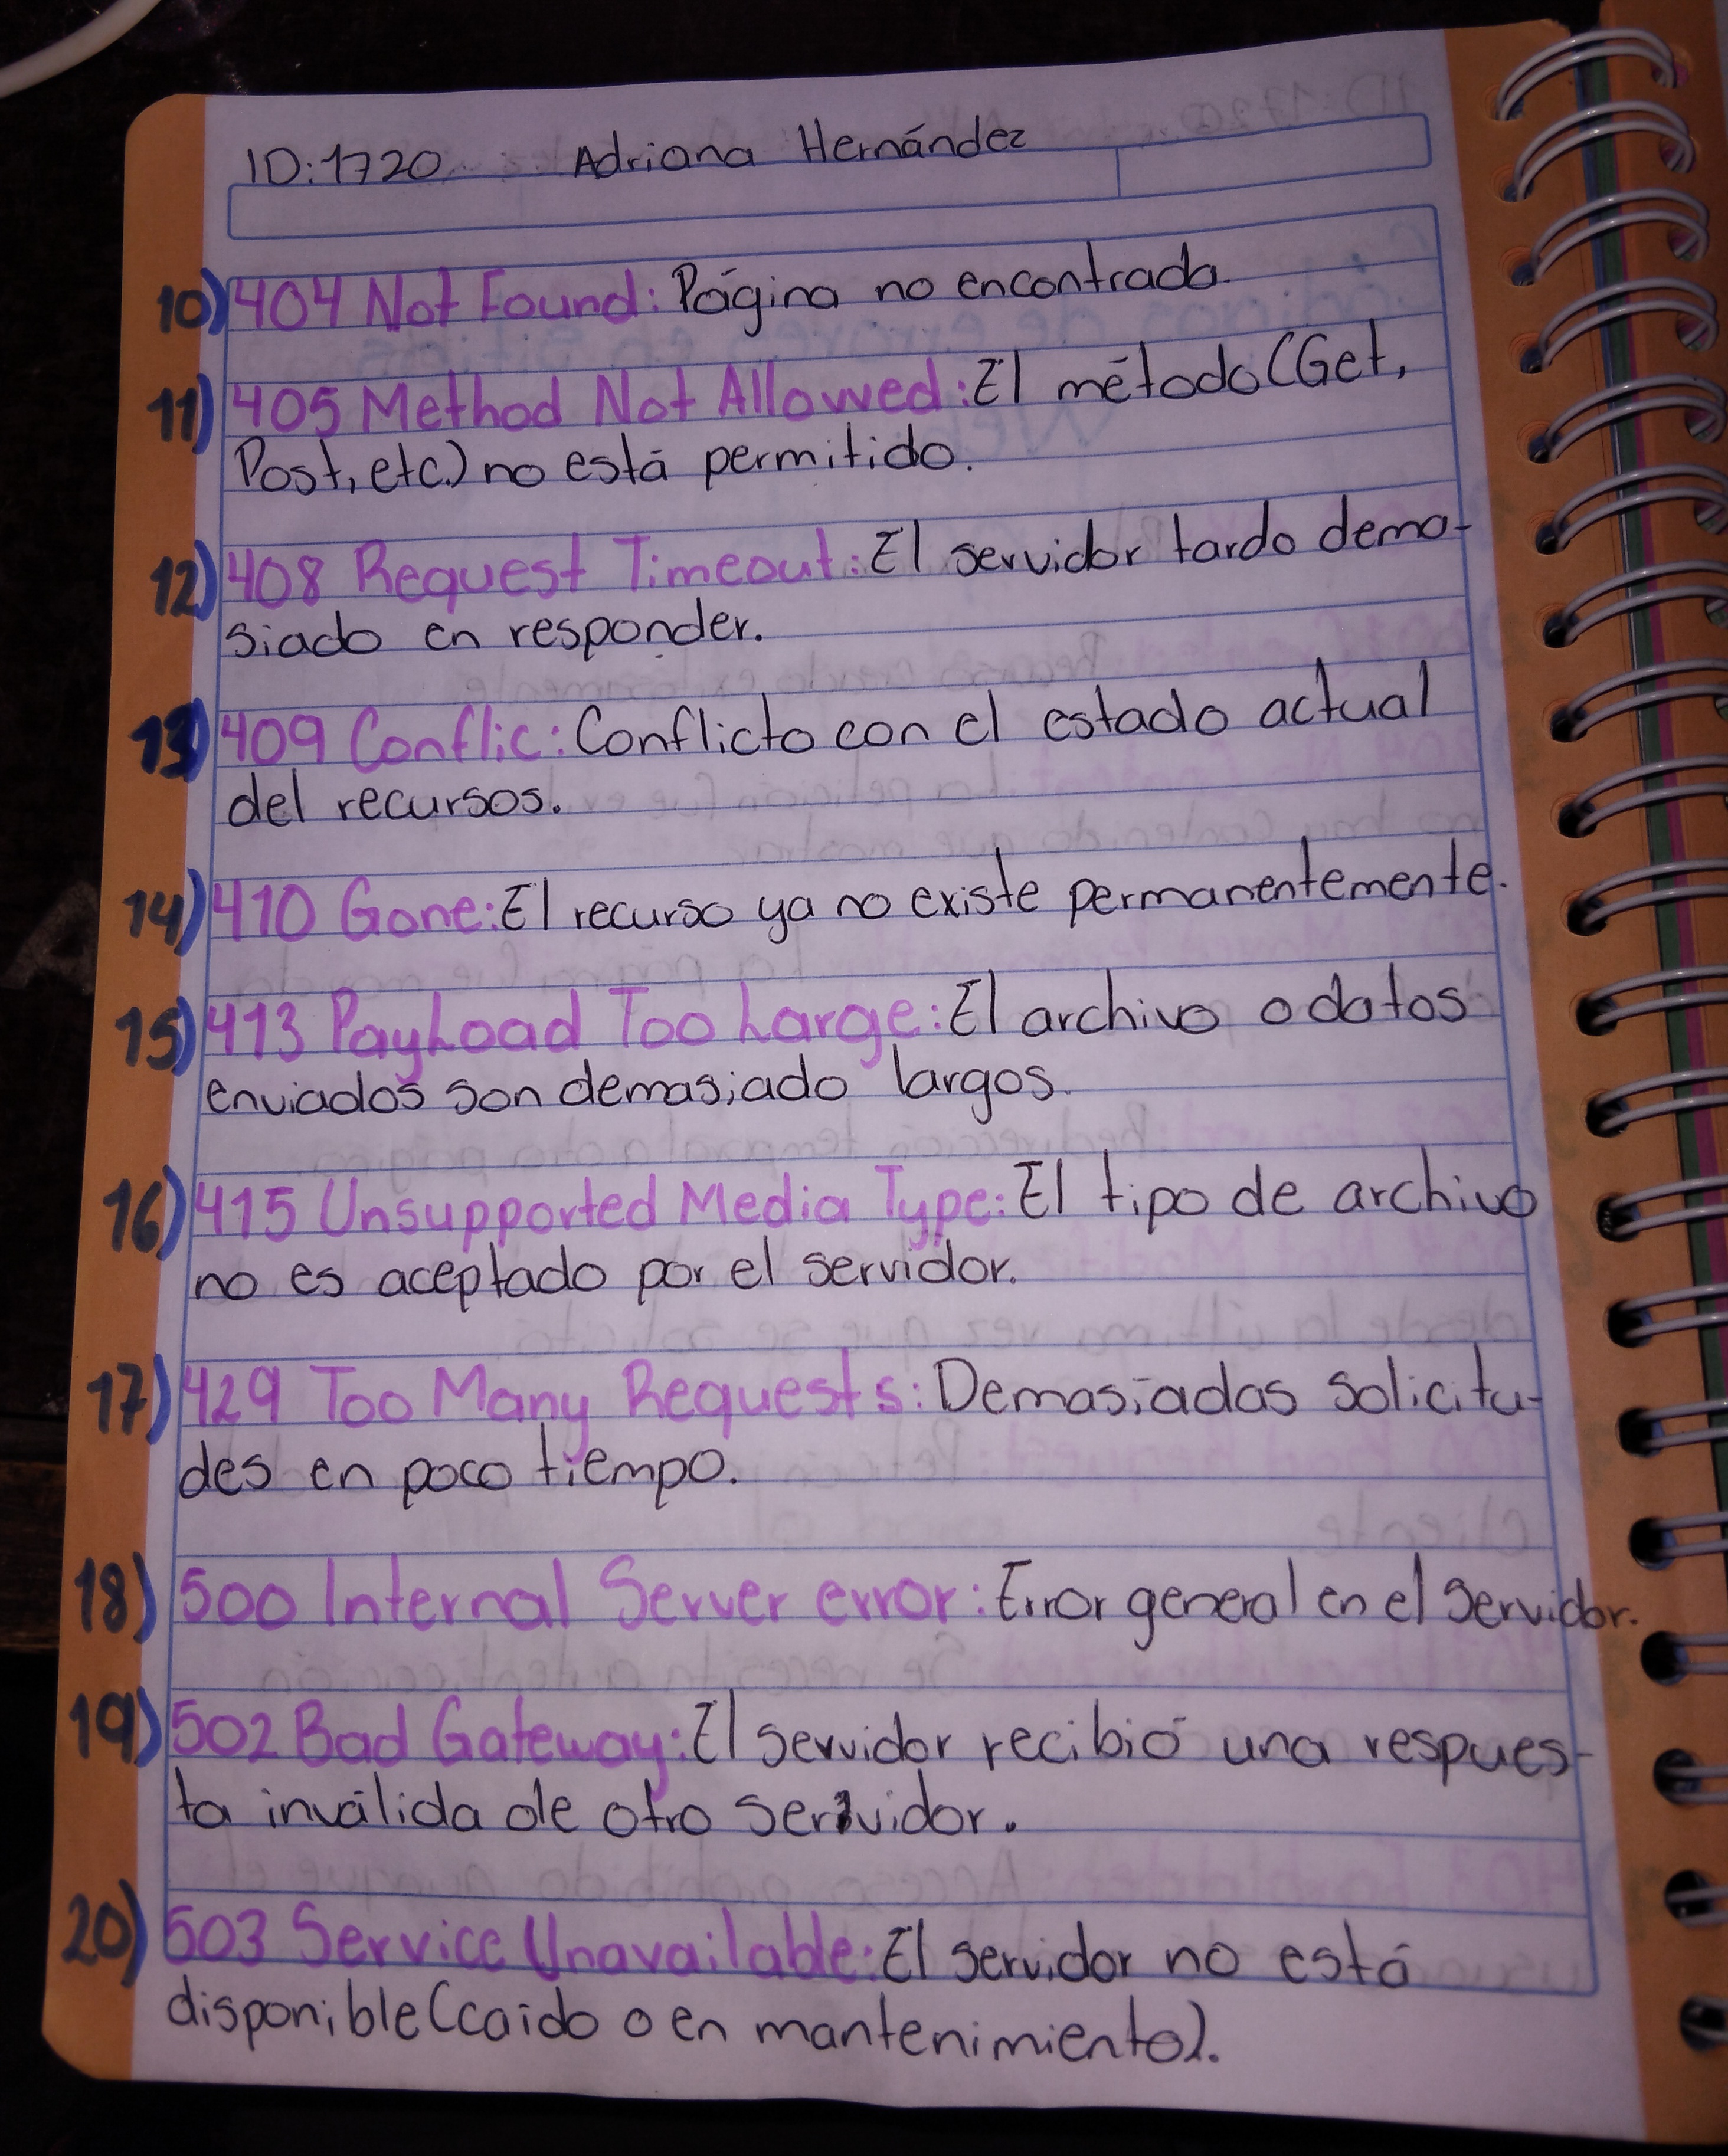 ID:1720 Adriana Hernández
10) 404 Not Found: Página no encontrada.
11) 405 Method Not Allowed: El método (Get,
Post, etc.) no está permitido.
12) 408 Request Timeout: El servidor tardo dema-
siado en responder.
13) 409 Conflic: Conflicto con el estado actual
del recursos.
14) 410 Gone: El recurso ya no existe permanentemente.
15) 413 PayLoad Too Large: El archivo o datos
enviados son demasiado largos.
16) 415 Unsupported Media Type: El tipo de archivo
no es aceptado por el servidor.
17) 429 Too Many Requests: Demasiadas solicitu-
des en poco tiempo.
18) 500 Internal Server error: Error general en el servidor.
19) 502 Bad Gateway: El servidor recibió una respues-
ta inválida de otro servidor.
20) 503 Service Unavailable: El servidor no está
disponible (caido o en mantenimiento).